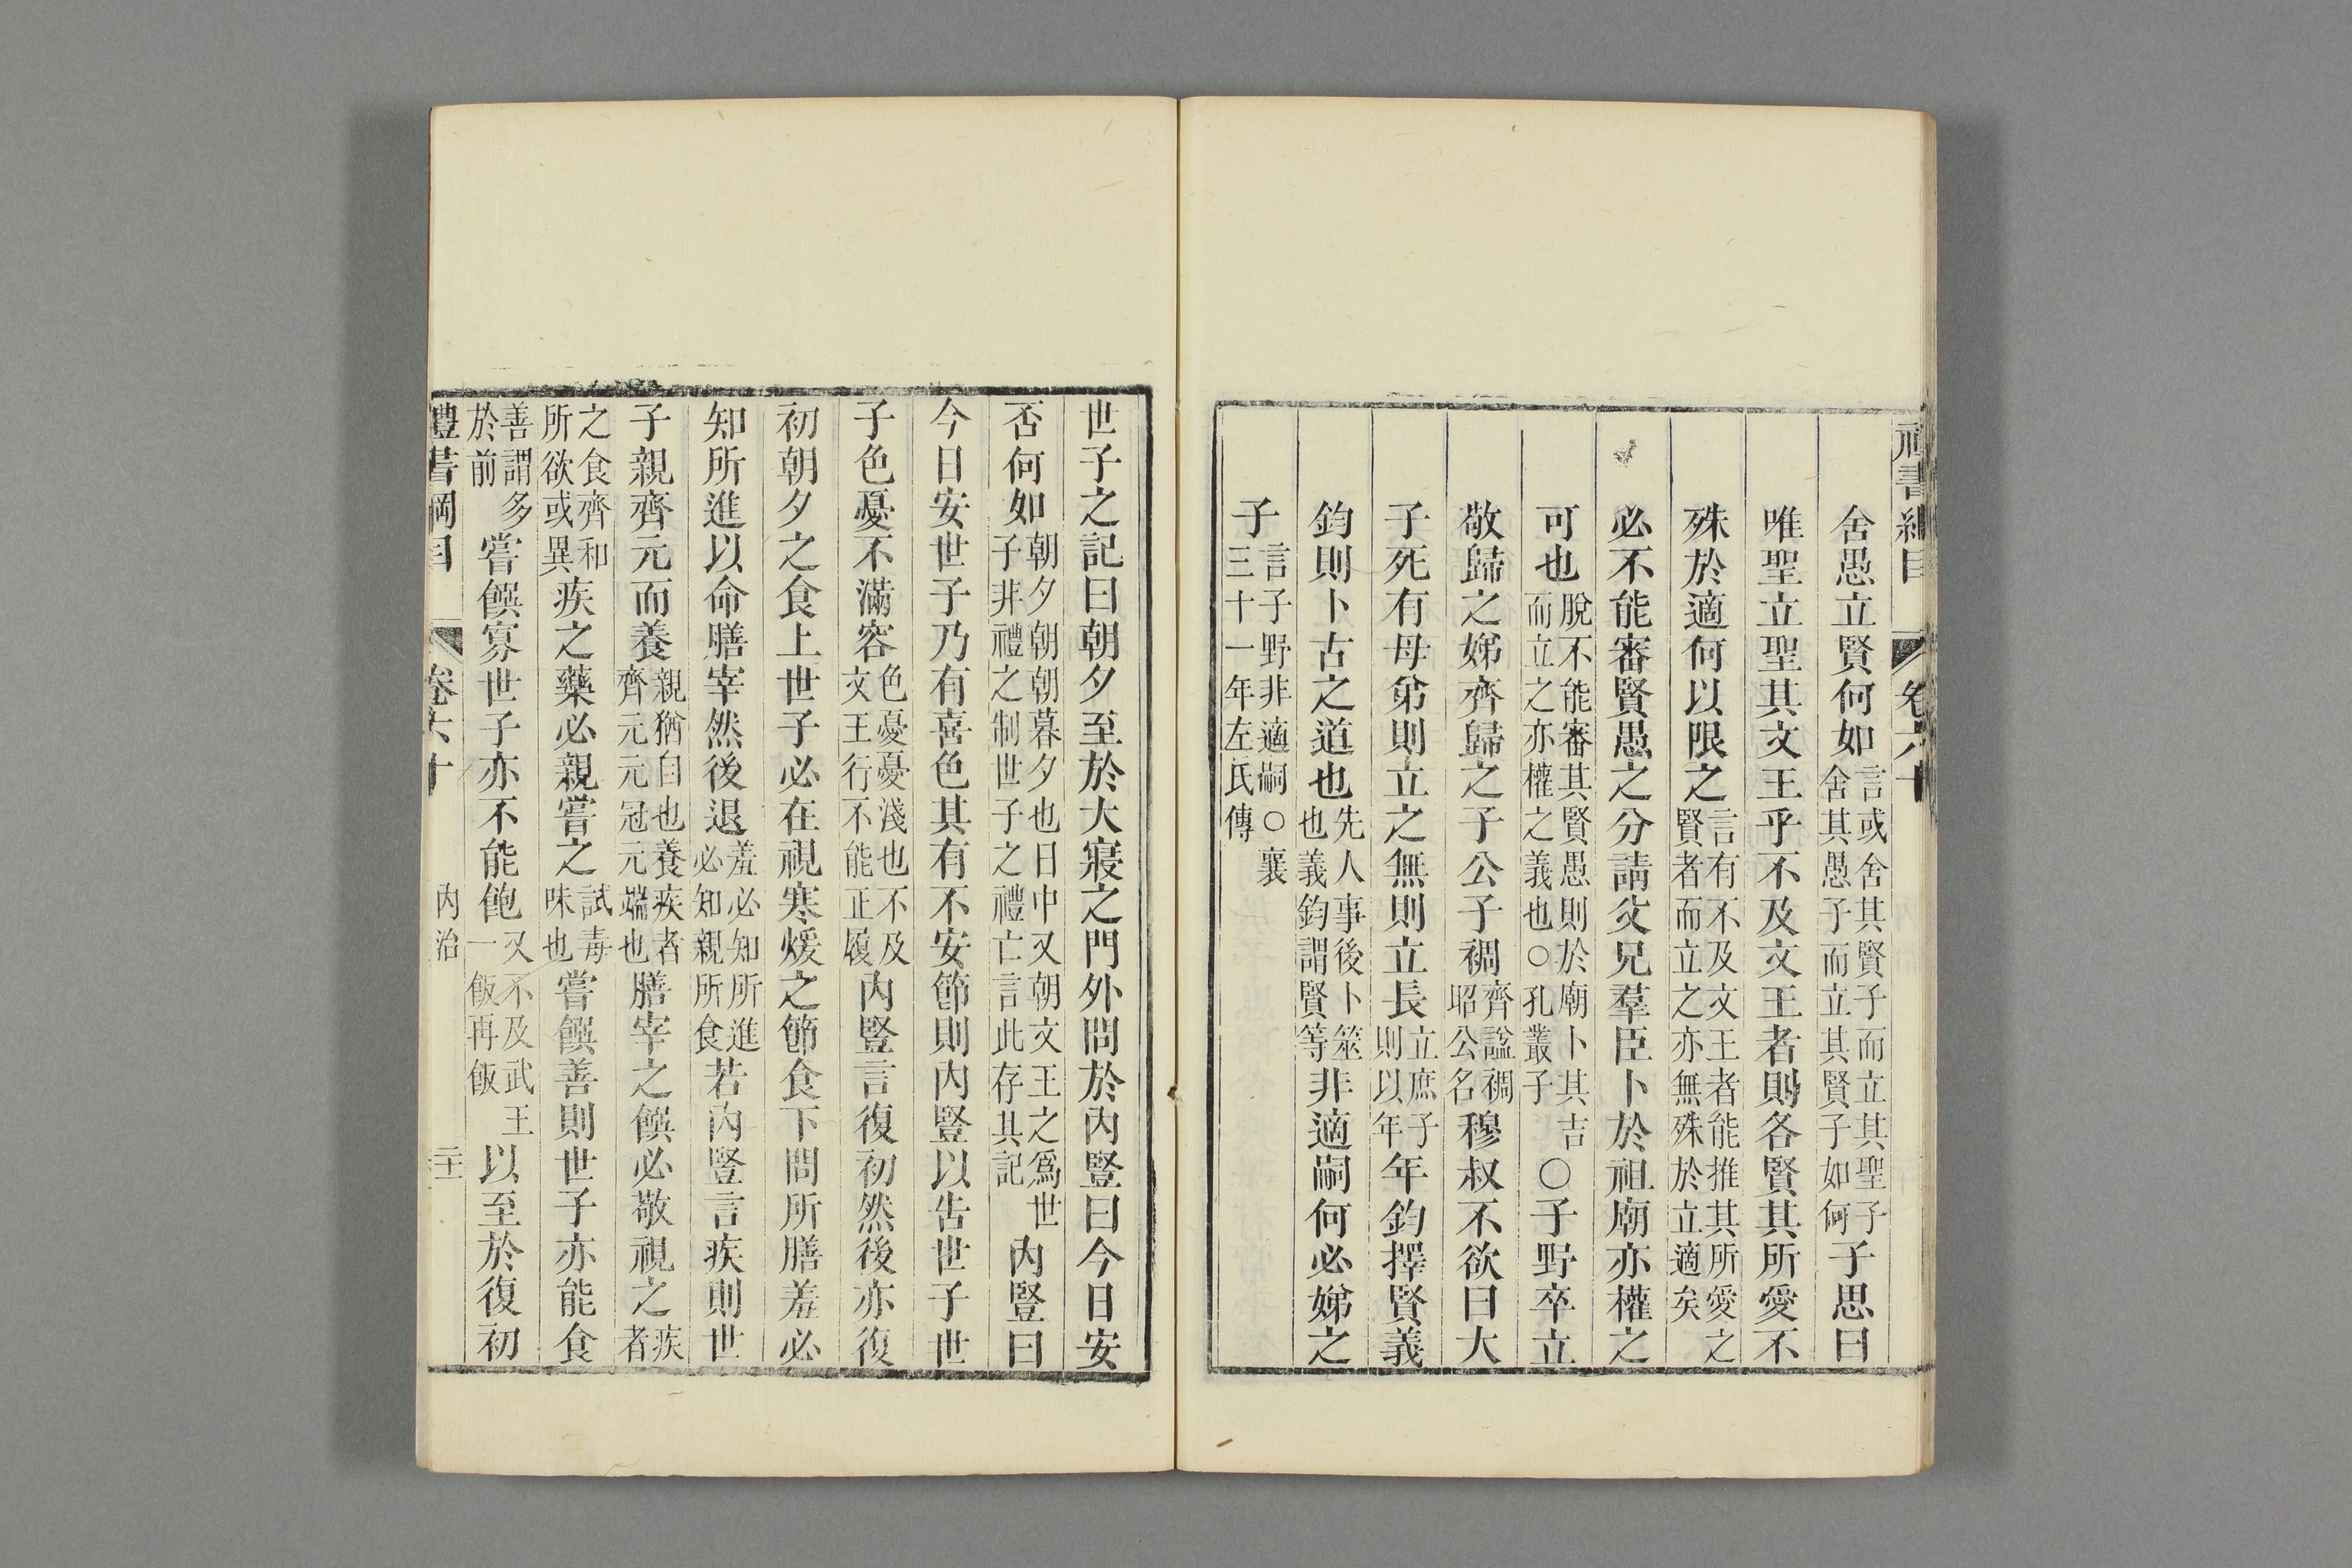 禮書綱目 卷六十
舍愚立賢何如言或舍其賢子而立其聖子舍其愚子而立其賢子如何子思曰
唯聖立聖其文王乎不及文王者則各賢其所愛不
殊於適何以限之言有不及文王者能推其所愛之賢者而立之亦無殊於立適矣
必不能審賢愚之分請父兄羣臣卜於祖廟亦權之
可也脫不能審其賢愚則於廟卜其吉而立之亦權之義也○孔叢子○子野卒立
敬歸之娣齊歸之子公子裯齊諡裯昭公名穆叔不欲曰大
子死有母弟則立之無則立長立庶子則以年年鈞擇賢義
鈞則卜古之道也先人事後卜筮也義鈞謂賢等非適嗣何必娣之
子言子野非適嗣○襄三十一年左氏傳
世子之記曰朝夕至於大寢之門外問於內豎曰今日安
否何如朝夕朝朝暮夕也日中又朝文王之爲世子非禮之制世子之禮亡言此存其記內豎曰
今日安世子乃有喜色其有不安節則內豎以告世子世
子色憂不滿容色憂憂淺也不及文王行不能正履內豎言復初然後亦復
初朝夕之食上世子必在視寒煖之節食下問所膳羞必
知所進以命膳宰然後退羞必知所進必知親所食若內豎言疾則世
子親齊元而養親猶自也養疾者齊元元冠元端也膳宰之饌必敬視之疾者
之食齊和所欲或異疾之藥必親嘗之試毒味也嘗饌善則世子亦能食
善謂多於前嘗饌寡世子亦不能飽又不及武王一飯再飯以至於復初
禮書綱目 卷六十 內治